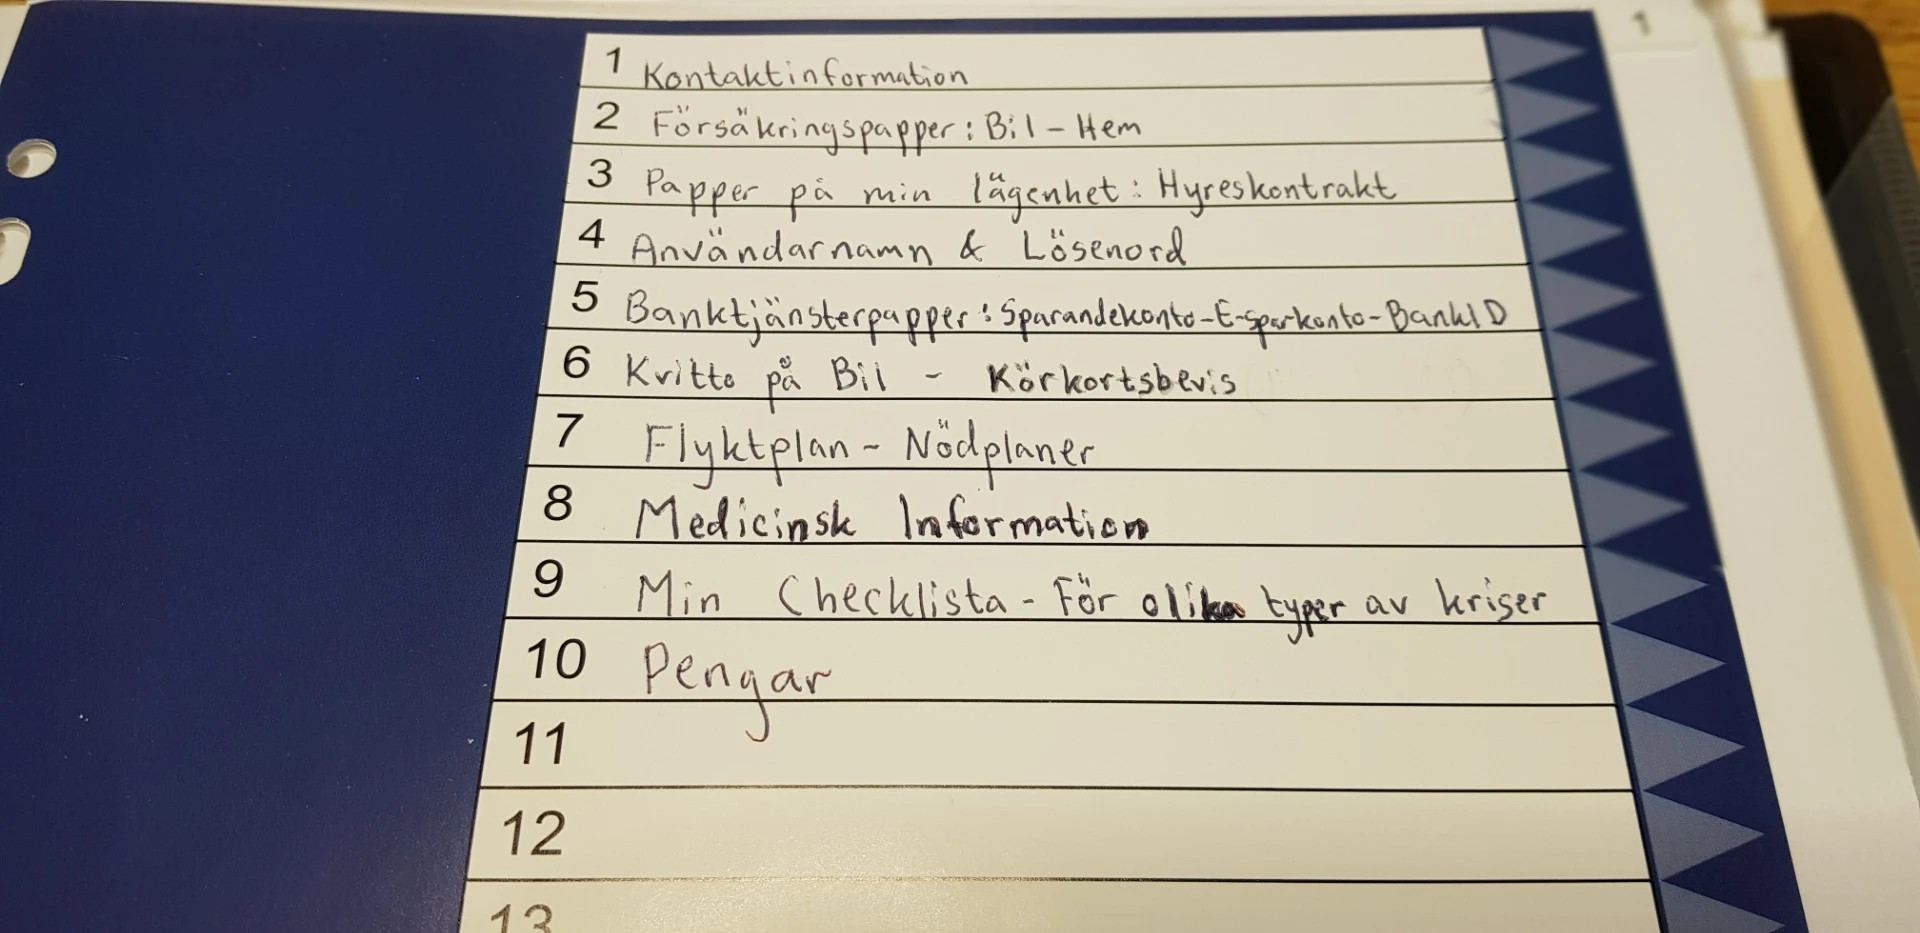 1
1 Kontaktinformation
2 Försäkringspapper: Bil - Hem
3 Papper på min lägenhet: Hyreskontrakt
4 Användarnamn & Lösenord
5 Banktjänsterpapper: Sparandekonto-E-sparkonto-BankID
6 Kvitto på Bil - Körkortsbevis
7 Flyktplan - Nödplaner
8 Medicinsk Information
9 Min Checklista - För olika typer av kriser
10 Pengar
11
12
13